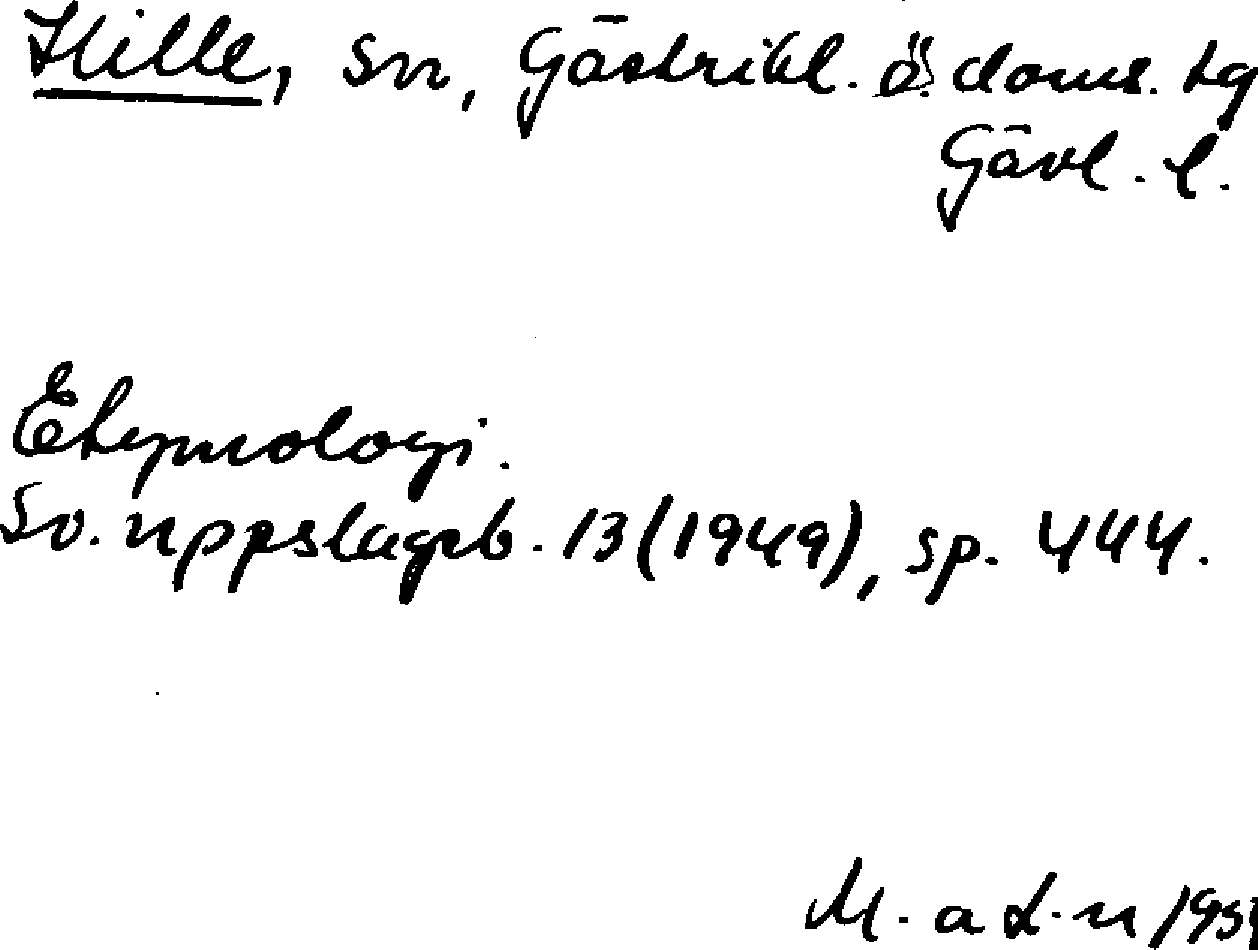 Hille, sn, Gästrikl. ö. doms. tg
Gävl. l.
Etymologi.
Sv. uppslagsb. 13 (1949), sp. 444.
M. a L-n